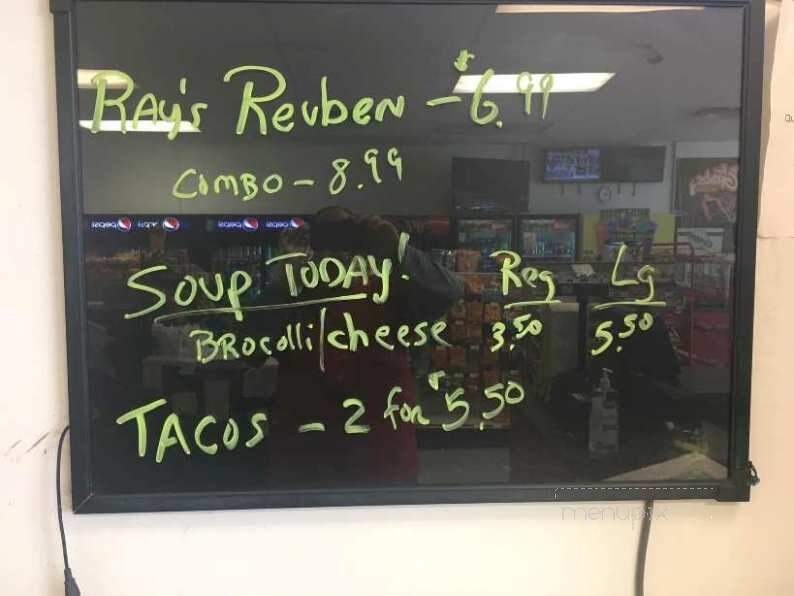 Ray's Reuben - $6.99
COMBO - 8.99
Soup TODAY! Reg Lg
BRocolli/cheese 3.50 5.50
TACOS - 2 for $5.50
menupix